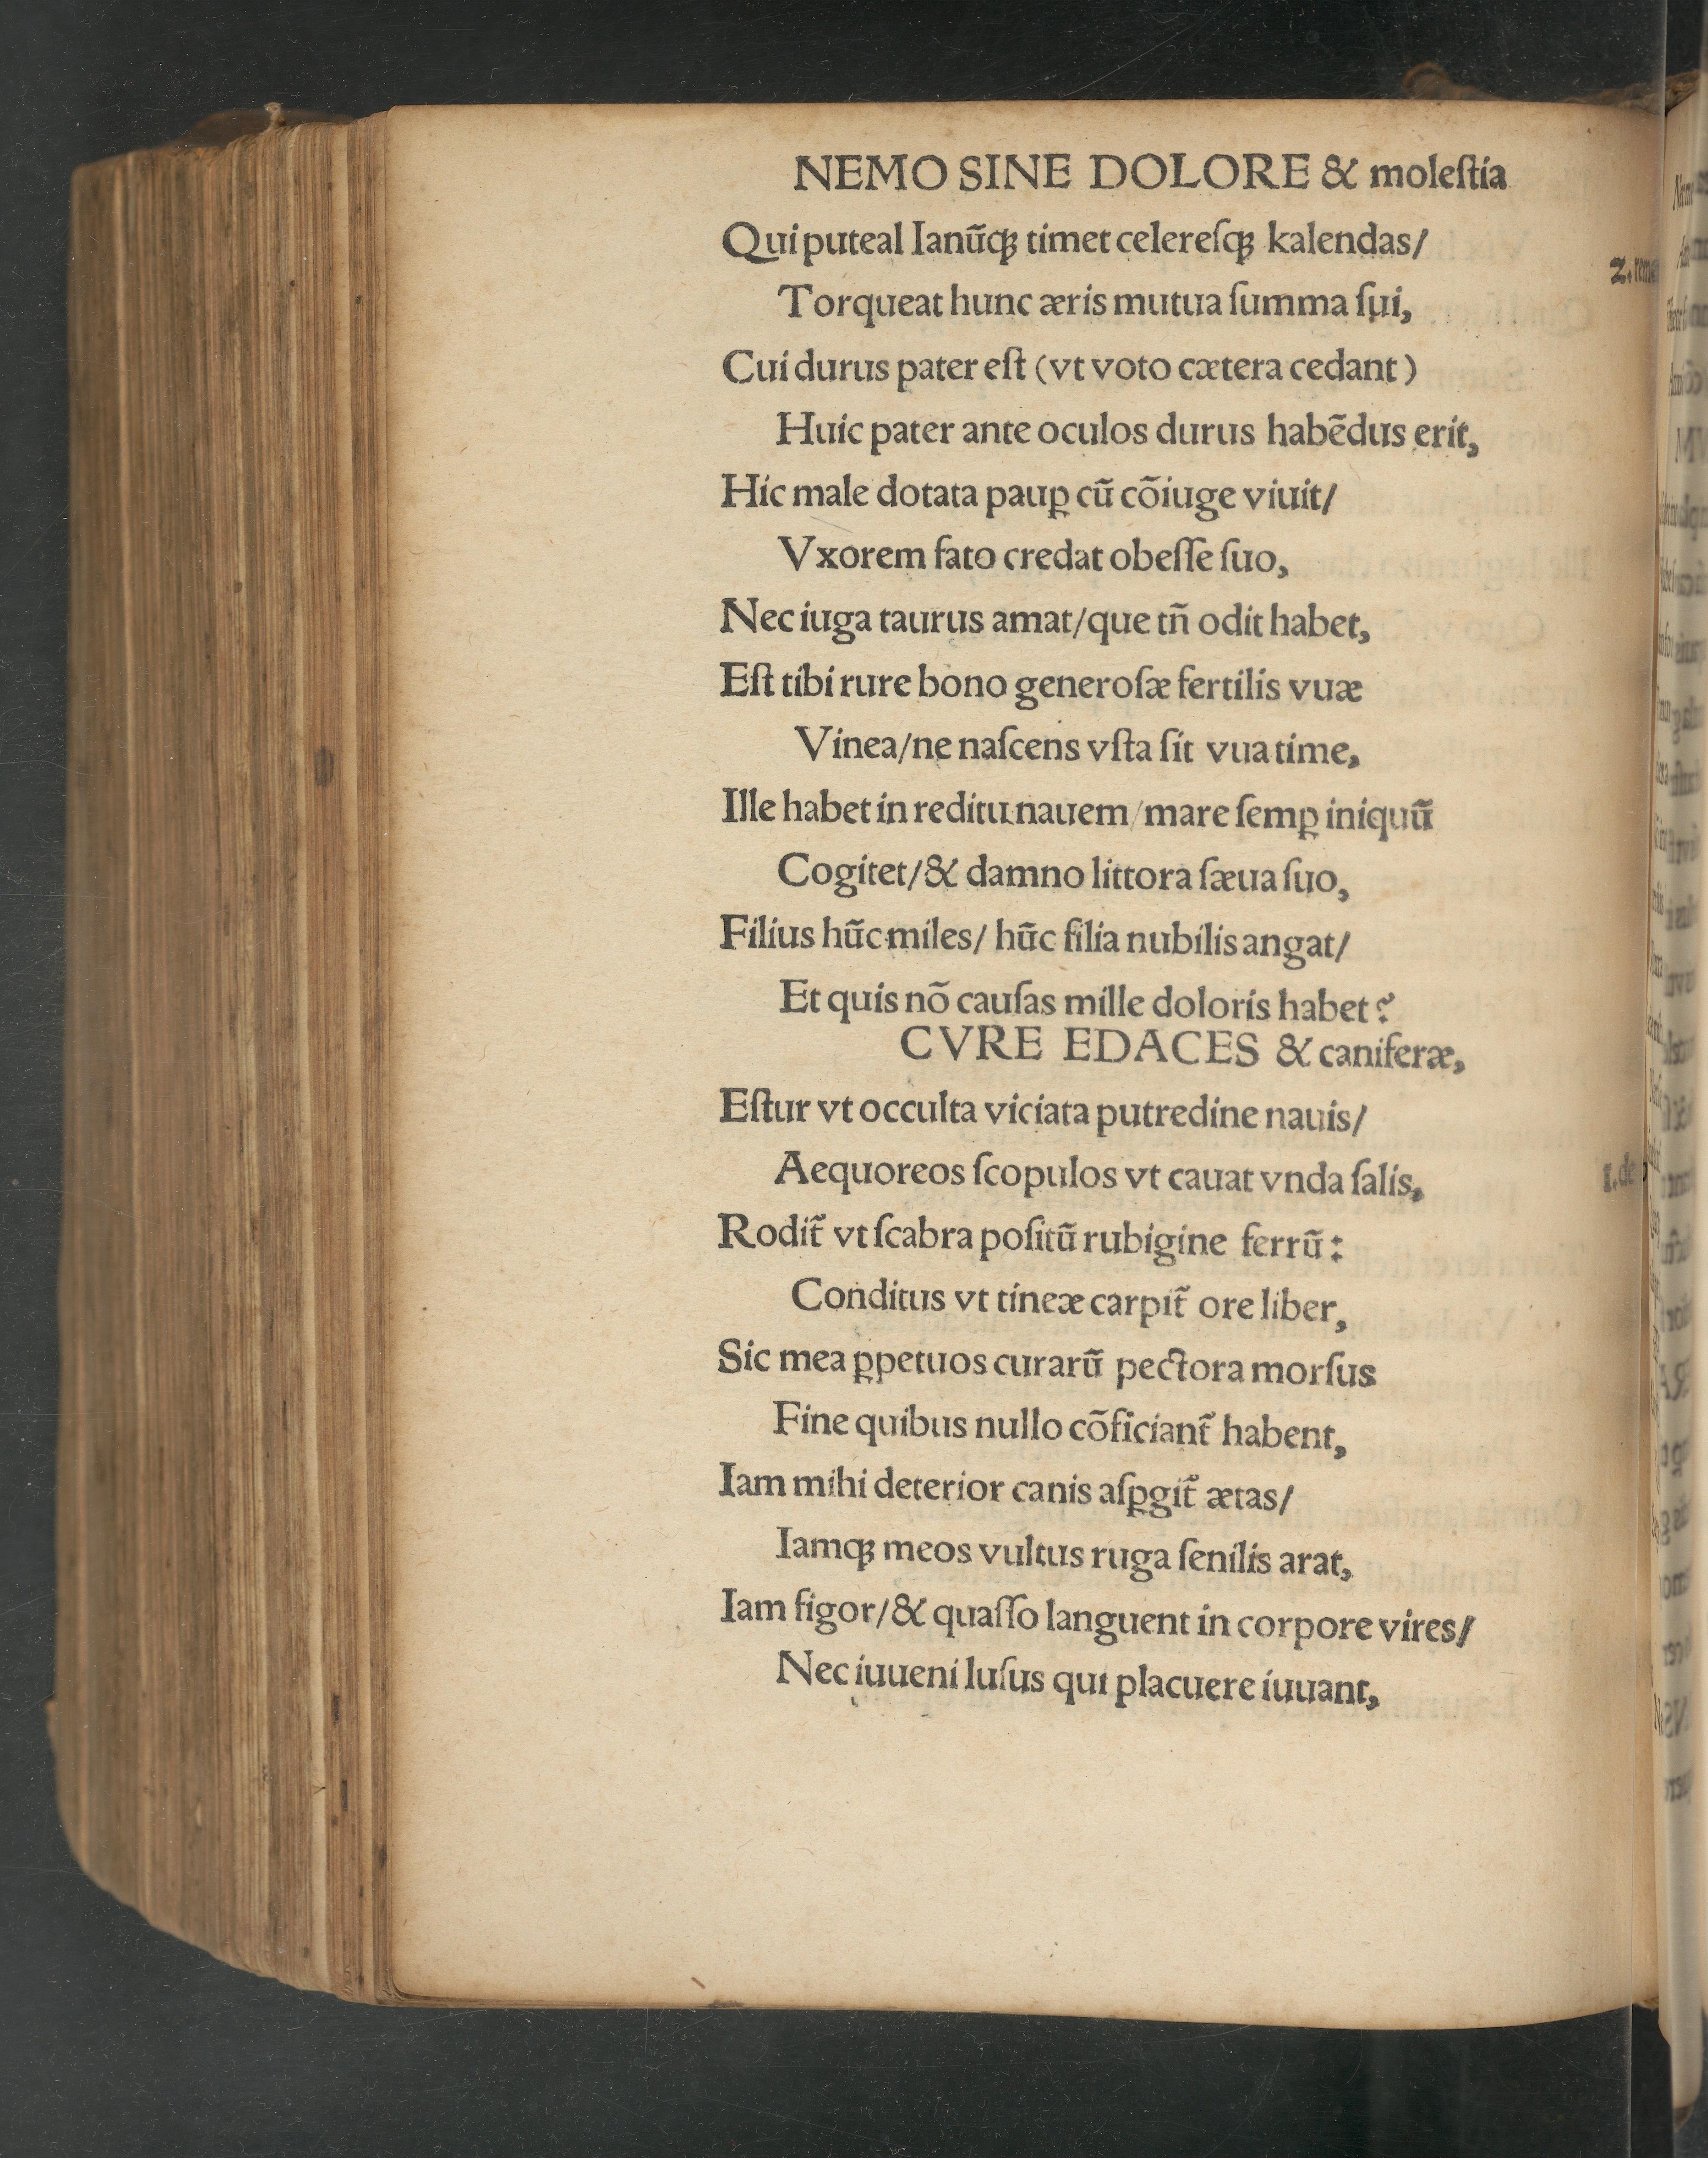 NEMO SINE DOLORE & moleſtia
Qui puteal Ianũqꝫ timet celereſqꝫ kalendas/
2. reme
Torqueat hunc æris mutua ſumma ſui,
Cui durus pater eſt (vt voto cætera cedant)
Huic pater ante oculos durus habẽdus erit,
Hic male dotata pauꝑ cũ cõiuge viuit/
Vxorem fato credat obeſſe ſuo,
Nec iuga taurus amat/que tñ odit habet,
Eſt tibi rure bono generoſæ fertilis vuæ
Vinea/ne naſcens vſta ſit vua time,
Ille habet in reditu nauem/mare ſemꝑ iniquũ
Cogitet/& damno littora ſæua ſuo,
Filius hũc miles/ hũc filia nubilis angat/
Et quis nõ cauſas mille doloris habet?
CVRE EDACES & caniferæ,
Eſtur vt occulta viciata putredine nauis/
Aequoreos ſcopulos vt cauat vnda ſalis,
1. de
Rodit̃ vt ſcabra poſitũ rubigine ferrũ:
Conditus vt tineæ carpit̃ ore liber,
Sic mea ꝑpetuos curarũ pectora morſus
Fine quibus nullo cõficiant̃ habent,
Iam mihi deterior canis aſꝑgit̃ ætas/
Iamqꝫ meos vultus ruga ſenilis arat,
Iam figor/& quaſſo languent in corpore vires/
Nec iuueni luſus qui placuere iuuant,